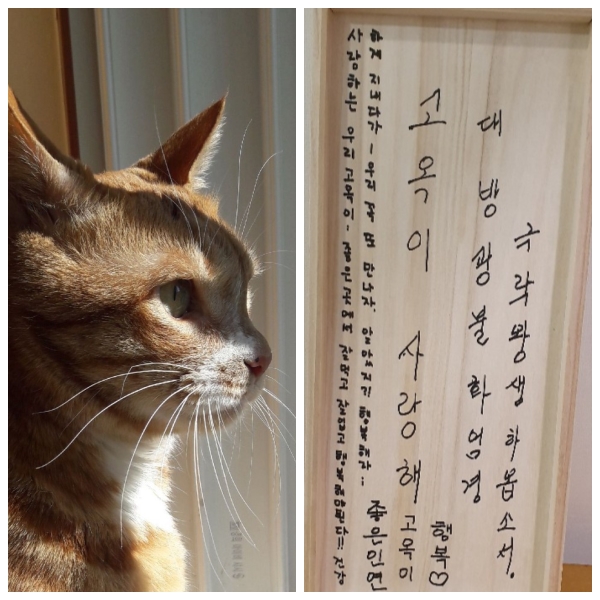 사랑하는 우리 고옥이~ 좋은곳에서 잘먹고 행복해야된다!! 건강
하게 지내다가~ 우리 꼭 또 만나자. 행복하자..
좋은인연
고옥이 사랑해
고옥이
행복♡
대방광불화엄경
극락왕생하옵소서.